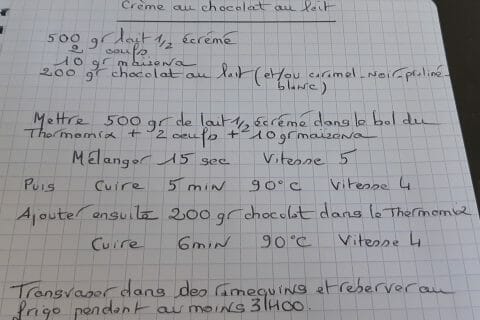 Crème au chocolat au lait
500 gr lait 1/2 écrémé
2 oeufs
10 gr maizena
200 gr chocolat au lait (et/ou caramel-noir-praliné-
blanc)
Mettre 500 gr de lait 1/2 écrémé dans le bol du
Thermomix + 2 oeufs + 10 gr maizena
Mélanger 15 sec Vitesse 5
Puis Cuire 5 min 90°C Vitesse 4
Ajouter ensuite 200 gr chocolat dans le Thermomix
Cuire 6 min 90°C Vitesse 4
Transvaser dans des ramequins et réserver au
frigo pendant au moins 3H00.